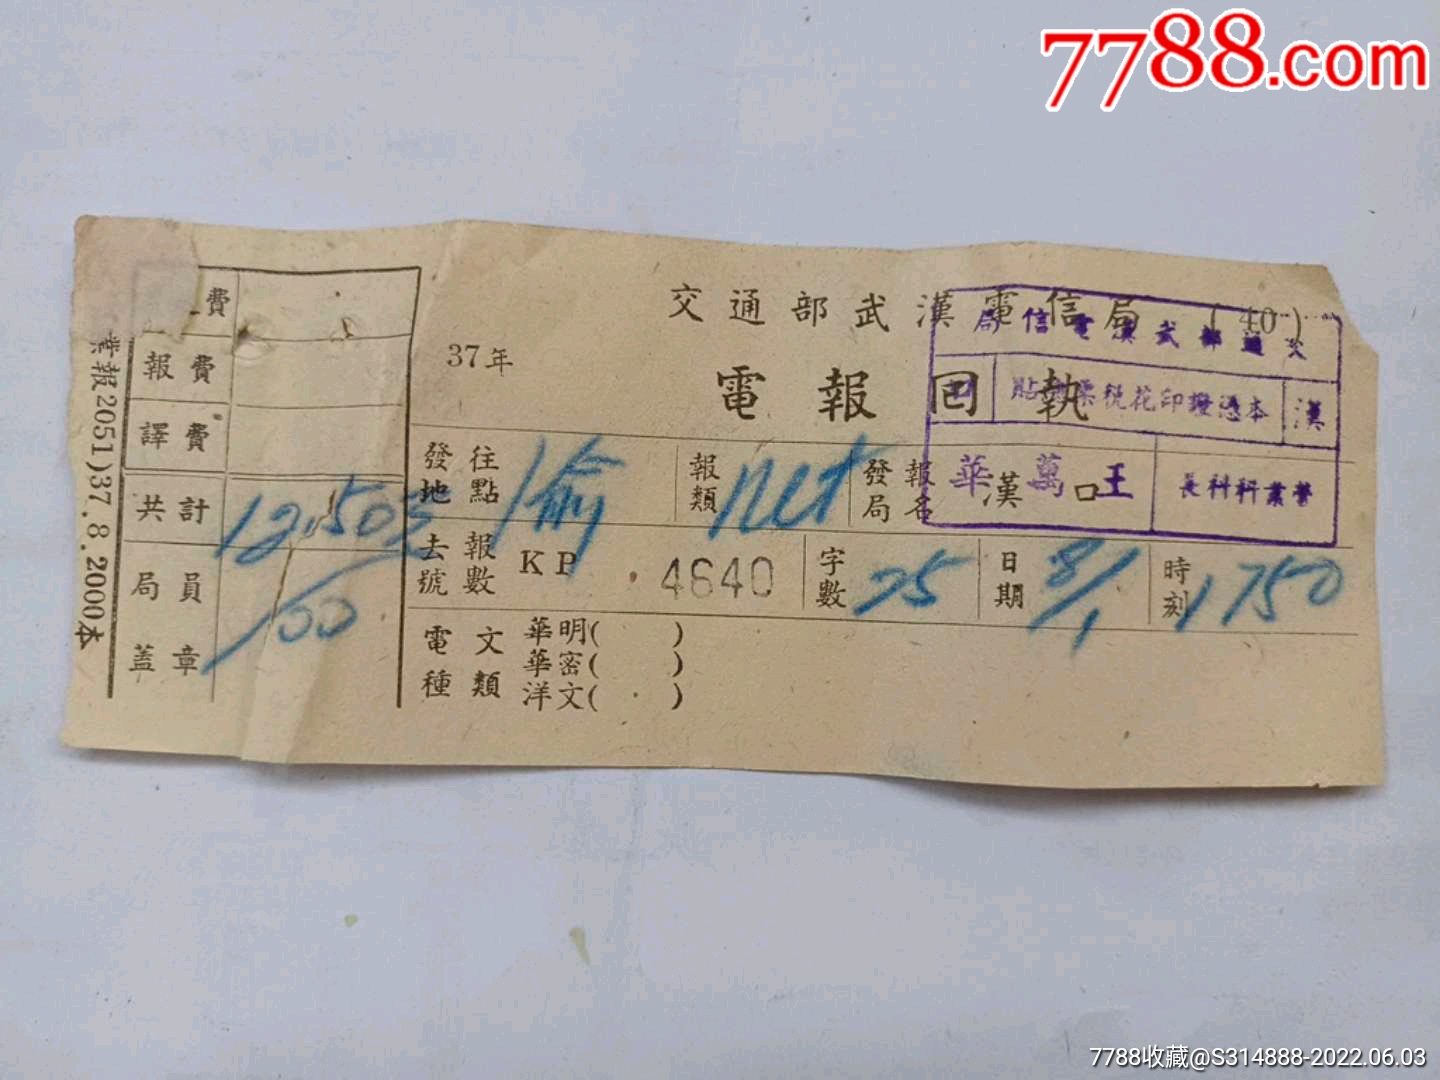 7788.com
交通部武漢電信局 (40)
37年
電報回執
費
報費
譯費
共計
局員
蓋章
業報2051)37.8.2000本
發往地點 渝
報類 NCT
發報局名 漢口
去報號數 KP 4640
字數 25
日期 8/1
時刻 1750
電文種類
華明( )
華密( )
洋文( )
交通部武漢電信局
漢
本憑證印花稅票
營業科科長
王萬華
7788收藏@S314888-2022.06.03